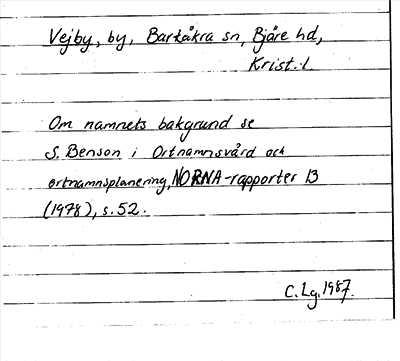 Vejby, by, Barkåkra sn, Bjäre hd,
Krist. l.
Om namnets bakgrund se
S. Benson i Ortnamnsvård och
ortnamnsplanering, NORNA-rapporter 13
(1978), s. 52.
C. Lg. 1987.